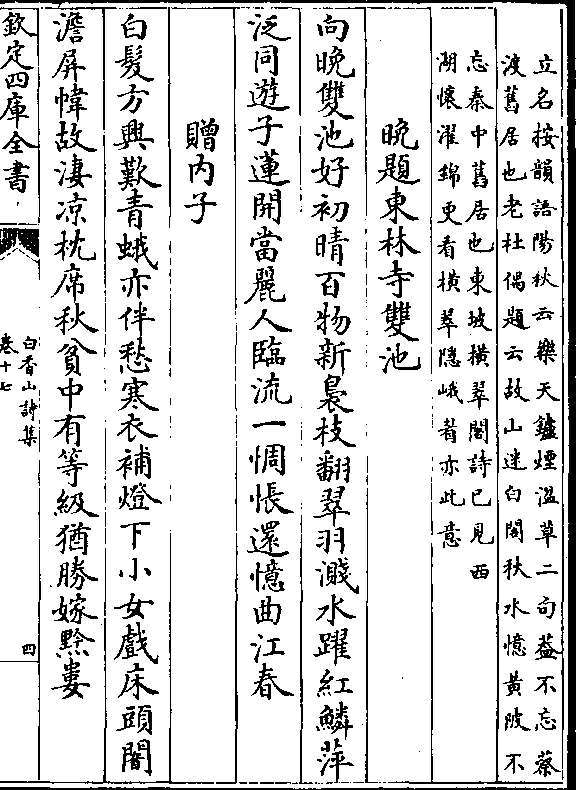 立名按韻語陽秋云樂天鑪煙湓草二句葢不忘蔡
渡舊居也老杜偶題云故山迷白閣秋水憶黃陂不
忘秦中舊居也東坡橫翠閣詩已見西
湖懷濯錦更看橫翠隱峨者亦此意
晚題東林寺雙池
向晚雙池好初晴百物新裊枝翻翠羽濺水躍紅鱗萍
泛同遊子蓮開當麗人臨流一惆悵還憶曲江春
贈内子
白髪方興歎青蛾亦伴愁寒衣補燈下小女戲床頭闇
澹屏幃故淒凉枕席秋貧中有等級猶勝嫁黔婁
欽定四庫全書
白香山詩集
卷十七
四